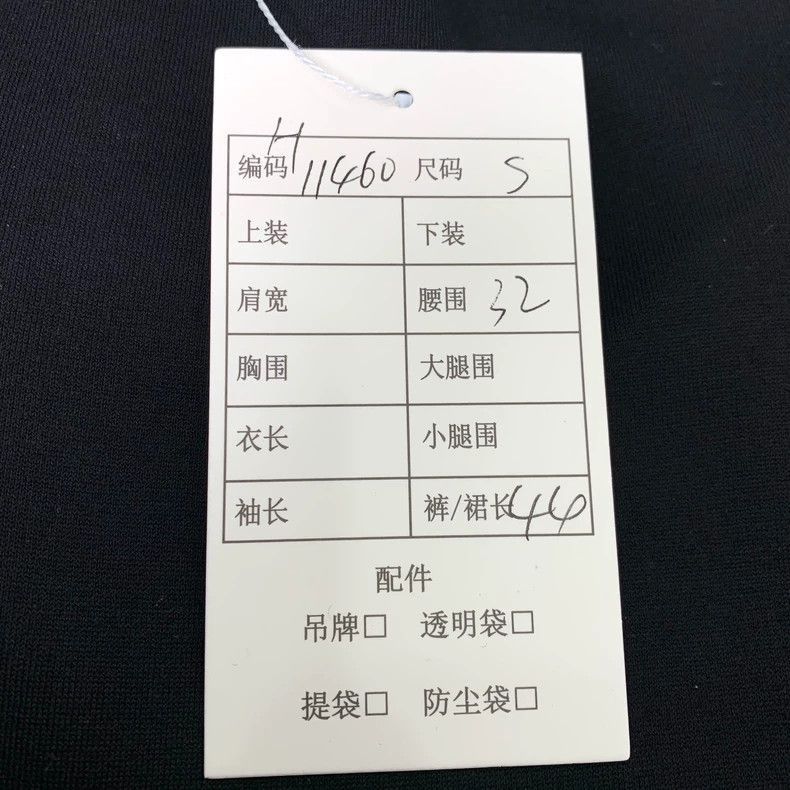 编码 H11460 尺码 S
上装 下装
肩宽 腰围 32
胸围 大腿围
衣长 小腿围
袖长 裤/裙长 44
配件
吊牌□ 透明袋□
提袋□ 防尘袋□